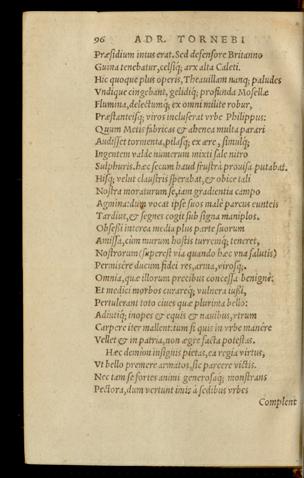 96 ADR. TORNEBI
Præsidium intus erat. Sed defensore Britanno
Guina tenebatur, celsiq; arx alta Caleti.
Hic quoque plus operis, Theauillam nanq; paludes
Vndique cingebant, gelidiq; profunda Mosellæ
Flumina, delectumq; ex omni milite robur,
Præstanteisq; viros incluserat vrbe Philippus:
Quum Metis fabricas & ahenea multa parari
Audisset tormenta, pilasq; ex ære, simulq;
Ingentem valde numerum mixti sale nitro
Sulphuris. hæc secum haud frustrà prouisa putabat.
Hisq; velut claustris sperabat, & obice tali
Nostra moraturum se, iam gradientia campo
Agmina: dum vocat ipse suos malè parcus eunteis
Tardius, & segnes cogit sub signa maniplos.
Obsessi interea media plus parte suorum
Amissa, cùm murum hostis turreimq; teneret,
Nostrorum (superest via quando hæc vna salutis)
Permisère ducum fidei res, arma, virosq;.
Omnia, quæ illorum precibus concessa benignè:
Et medici morbos curareq; vulnera iussi,
Pertulerant toto ciues quæ plurima bello:
Adiutiq; inopes & equis & nauibus, vtrum
Carpere iter mallent: tum si quis in vrbe manere
Vellet & in patria, non ægre facta potestas.
Hæc demùm insignis pietas, ea regia virtus,
Vt bello premere armatos, sic parcere victis.
Nec tam se fortes animi generosaq; monstrans
Pectora, dum vertunt imis à sedibus vrbes
Complent